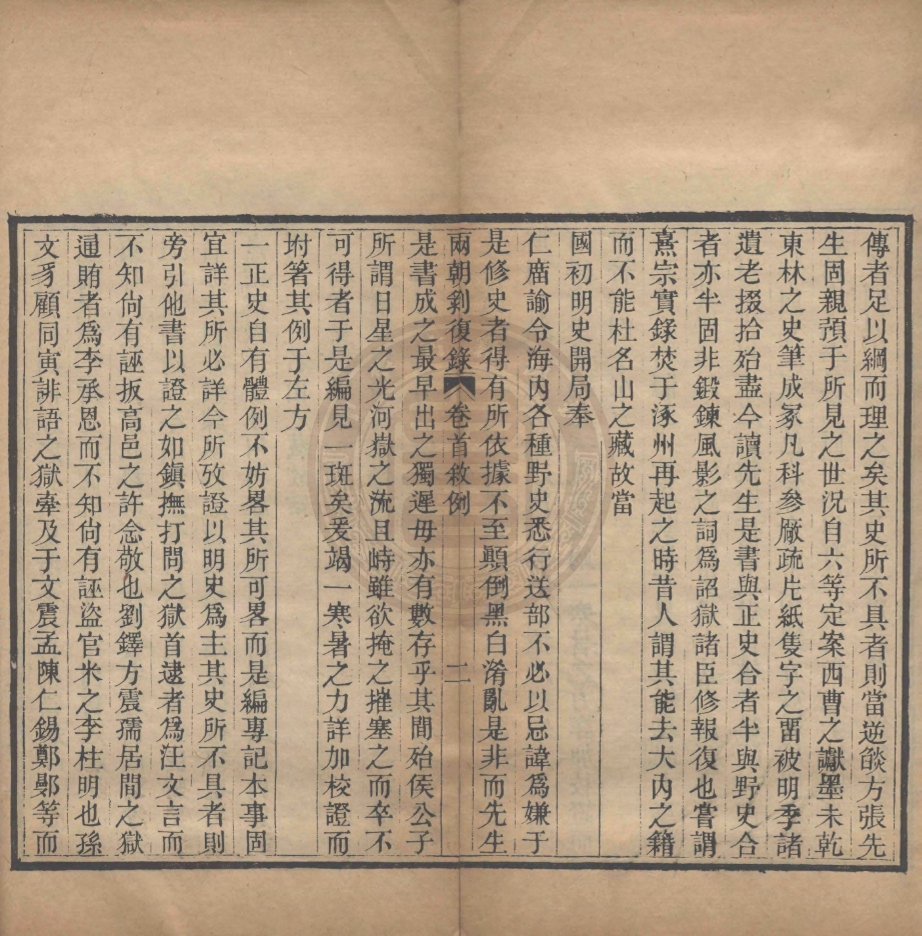 傳者足以綱而理之矣其史所不具者則當逆燄方張先
生固親預于所見之世況自六等定案西曹之讞墨未乾
東林之史筆成冢凡科參厰疏片紙隻字之畱被明季諸
遺老掇拾殆盡今讀先生是書與正史合者半與野史合
者亦半固非鍛鍊風影之詞爲詔獄諸臣修報復也嘗謂
熹宗實錄焚于涿州再起之時昔人謂其能去大內之籍
而不能杜名山之藏故當
國初明史開局奉
仁廟諭令海內各種野史悉行送部不必以忌諱爲嫌于
是修史者得有所依據不至顚倒黑白淆亂是非而先生
兩朝剝復錄 卷首敘例 二
是書成之最早出之獨遲毋亦有數存乎其間始侯公子
所謂日星之光河嶽之流且峙雖欲掩之摧塞之而卒不
可得者于是編見一斑矣爰竭一寒暑之力詳加校證而
坿箸其例于左方
一正史自有體例不妨畧其所可畧而是編專記本事固
宜詳其所必詳今所攷證以明史爲主其史所不具者則
旁引他書以證之如鎭撫打問之獄首逮者爲汪文言而
不知尙有誣扳高邑之許念敬也劉鐸方震孺居間之獄
通賄者爲李承恩而不知尙有誣盜官米之李柱明也孫
文豸顧同寅誹語之獄牽及于文震孟陳仁錫鄭鄤等而